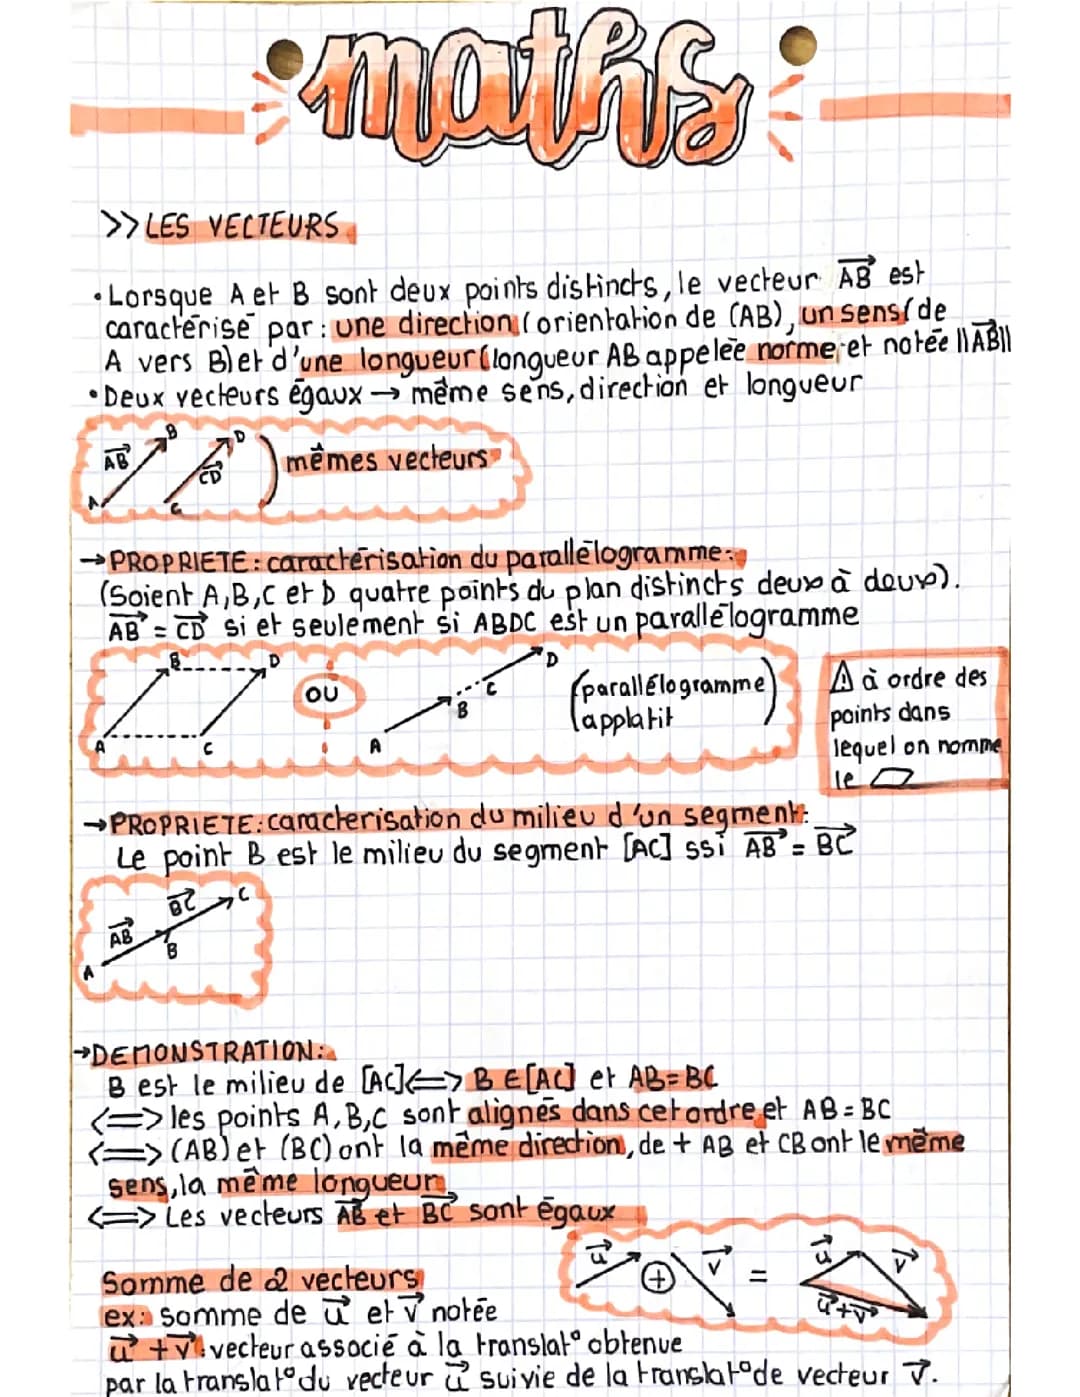 maths
>> LES VECTEURS
• Lorsque A et B sont deux points distincts, le vecteur AB⃗ est
caractérisé par : une direction (orientation de (AB), un sens (de
A vers B) et d'une longueur (longueur AB appelée norme, et notée ||AB⃗||
• Deux vecteurs égaux → même sens, direction et longueur
AB⃗ A B CD⃗ C D mêmes vecteurs
→ PROPRIETE : caractérisation du parallélogramme :
(Soient A, B, C et D quatre points du plan distincts deux à deux).
AB⃗ = CD⃗ si et seulement si ABDC est un parallélogramme
A B C D OU A B C D (parallélogramme
applatit)
⚠ à ordre des
points dans
lequel on nomme
le ▱
→ PROPRIETE : caracterisation du milieu d'un segment :
Le point B est le milieu du segment [AC] ssi AB⃗ = BC⃗
A AB⃗ B BC⃗ C
→ DEMONSTRATION :
B est le milieu de [AC] <=> B ∈ [AC] et AB = BC
<=> les points A, B, C sont alignés dans cet ordre et AB = BC
<=> (AB) et (BC) ont la même direction, de + AB et CB ont le même
sens, la même longueur
<=> Les vecteurs AB⃗ et BC⃗ sont égaux
u⃗ + v⃗ = u⃗ v⃗ u⃗+v⃗
Somme de 2 vecteurs
ex : somme de u⃗ et v⃗ notée
u⃗ + v⃗ : vecteur associé à la translat° obtenue
par la translat° du vecteur u⃗ suivie de la translat° de vecteur v⃗.